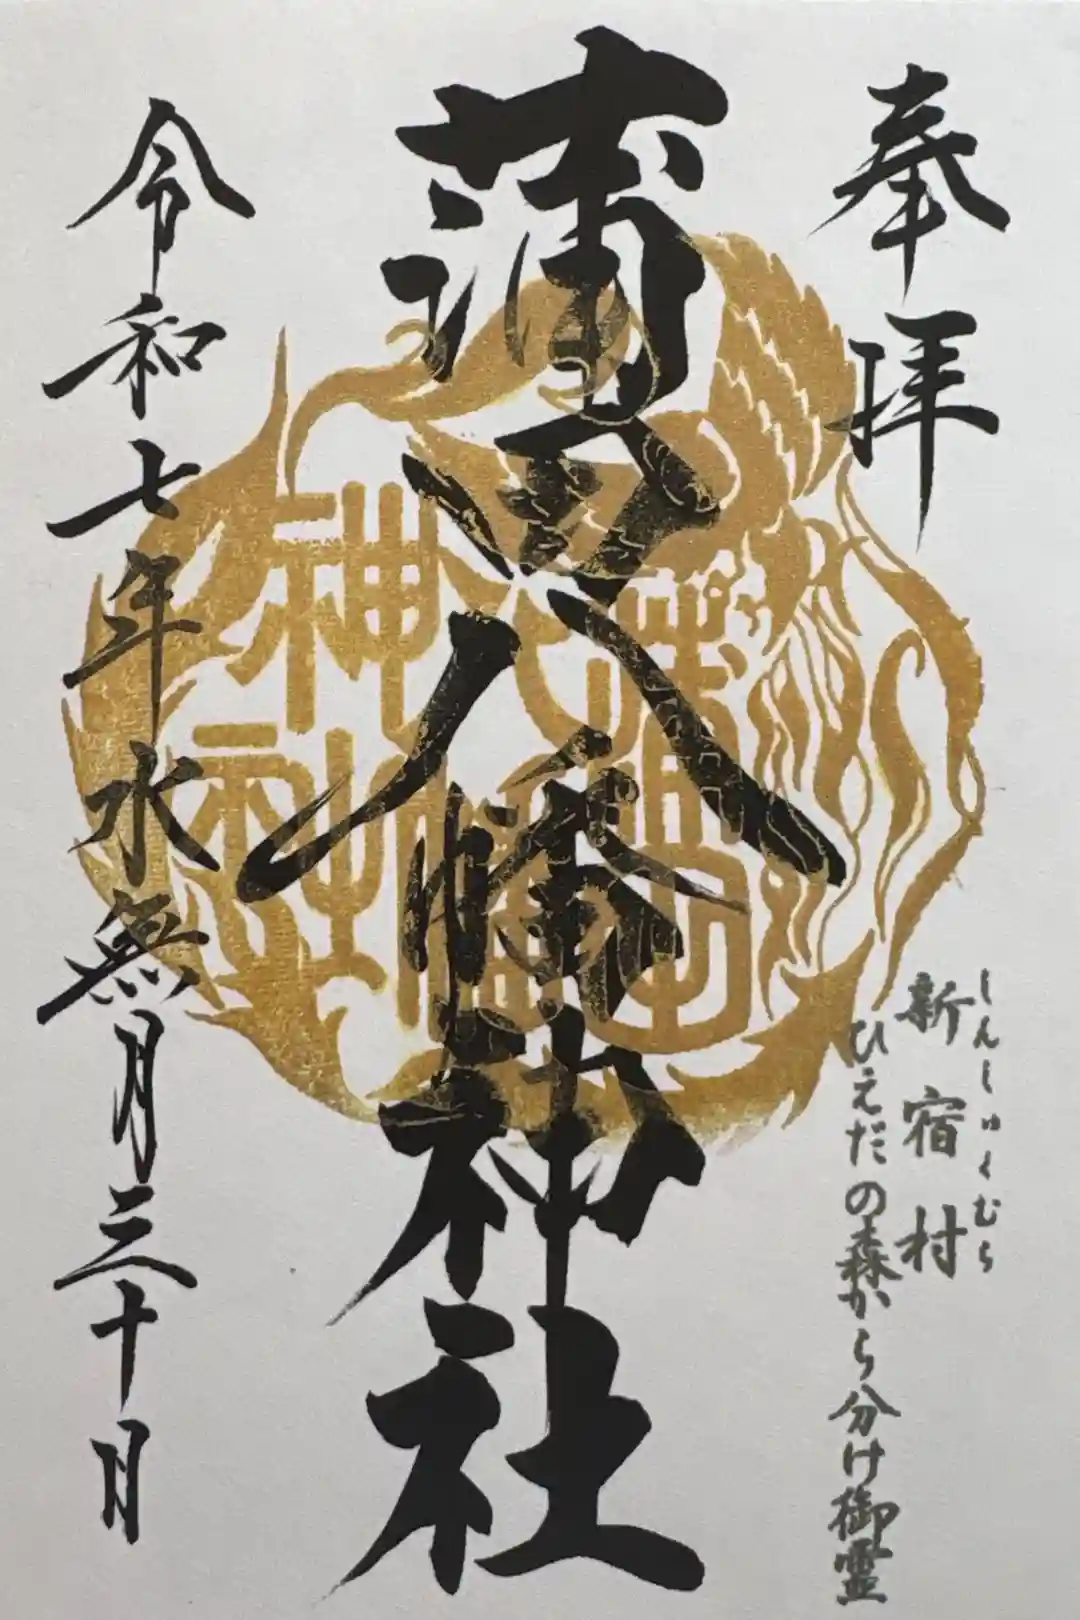 奉拝
しんしゅくむら
新宿村
ひえだの森から分け御霊
蒲田八幡神社
蒲田八幡
神社
令和七年水無月三十日